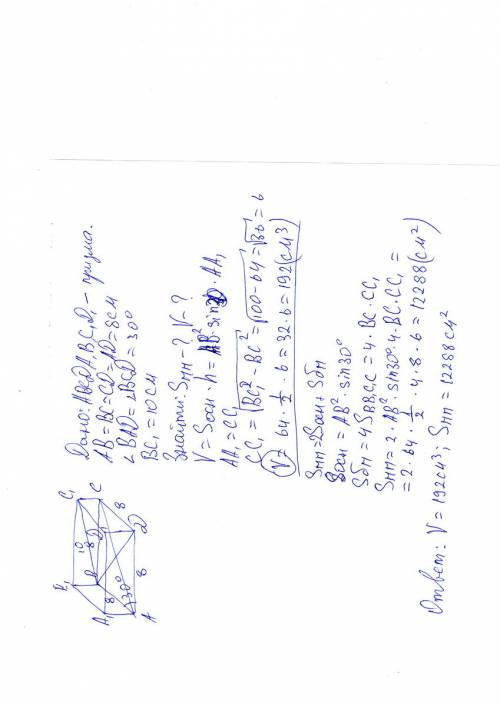 Дано: ABCDA₁B₁C₁D₁ – призма.
AB=BC=CD=AD=8см
∠BAD=∠BCD=30°
BC₁=10см
Знайти: Sпп-? V-?
V=Sосн·h=AB²·sin30·AA₁
AA₁=CC₁
CC₁=√BC₁²-BC²=√100-64=√36=6
V=64·1/2·6=32·6=192(см³)
Sпп=2Sосн+Sбп
Sосн=AB²·sin30°
Sбп=4SBB₁C₁C=4·BC·CC₁
Sпп=2·AB²·sin30°·4·BC·CC₁=
=2·64·1/2·4·8·6=12288(см²)
Ответ: V=192см³; Sпп=12288см²
B₁
C₁
10
A₁
B
8
D₁
C
8
8
30°
A
8
D